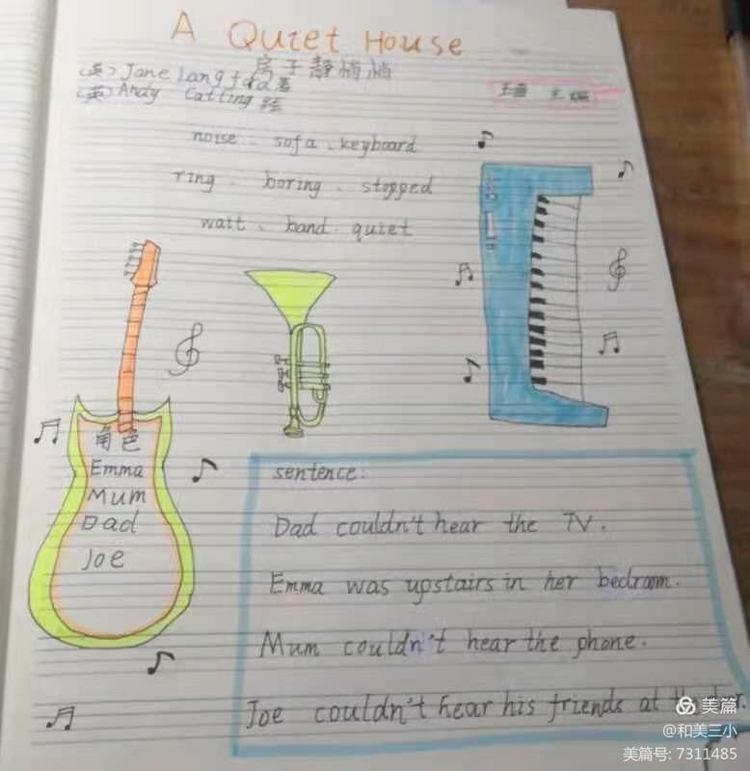 A Quiet House
房子静悄悄
(英) Jane Langford 著
(英) Andy Catling 绘
主编
noise、sofa、keyboard
ring、boring、stopped
wait、band、quiet
角色
Emma
Mum
Dad
Joe
sentence:
Dad couldn't hear the TV.
Emma was upstairs in her bedroom.
Mum couldn't hear the phone.
Joe couldn't hear his friends at
美篇
@和美三小
美篇号: 7311485